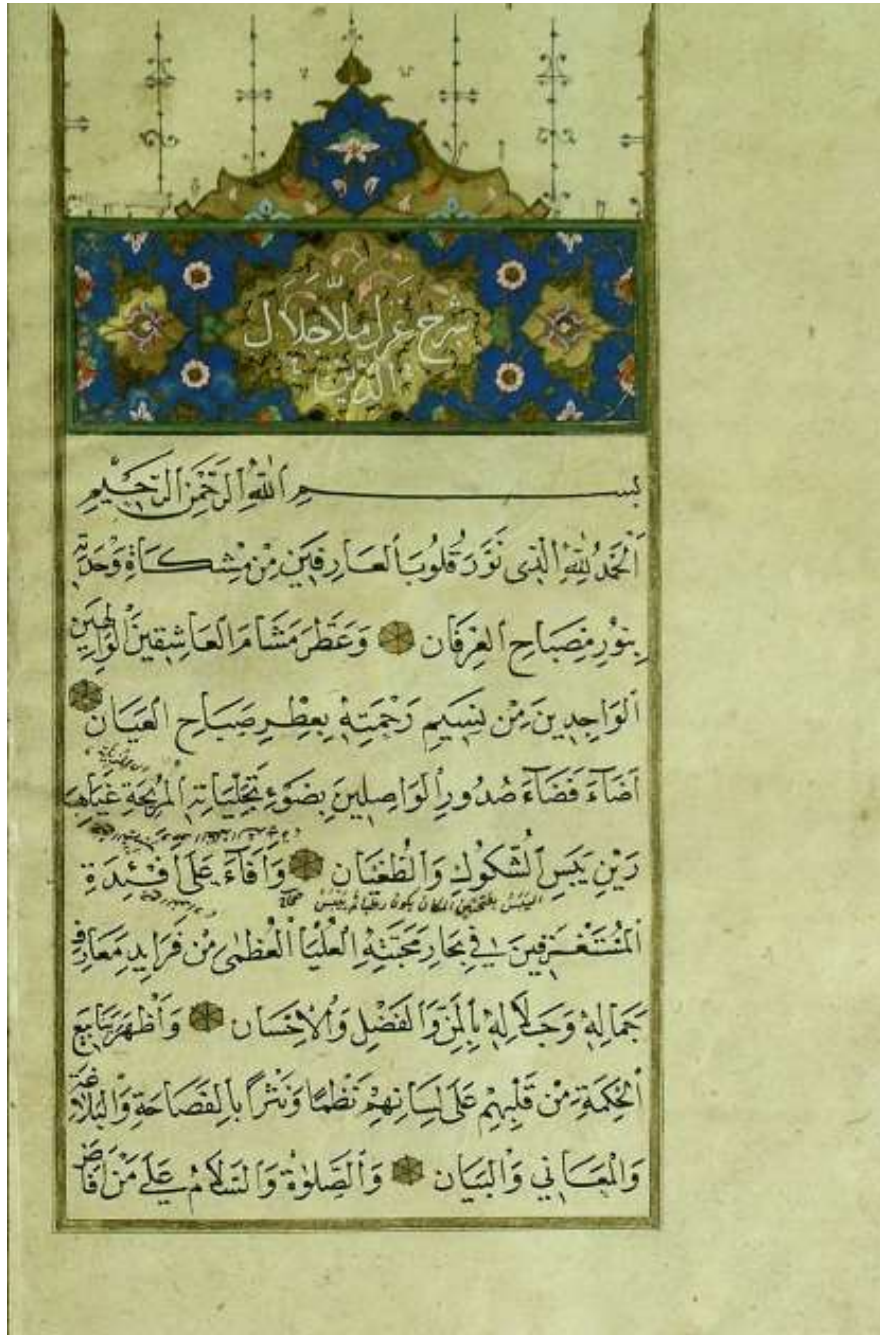 شرح غزل ملّا جلال
الدين
بسم اللّٰه الرحمن الرحيم
اَلْحَمْدُ لِلّٰهِ الَّذِى نَوَّرَ قُلُوبَ الْعَارِفِينَ مِنْ مِشْكَاةِ وَحْدَتِهِ
بِنُورِ مِصْبَاحِ الْعِرْفَان وَعَطَّرَ مَشَامَ الْعَاشِقِينَ الْوَالِهِينَ
الْوَاجِدِينَ مِنْ نَسِيمِ رَحْمَتِهِ بِعِطْرِ صَبَاحِ الْعَيَان
اَضَآءَ فَضَآءَ صُدُورِ الْوَاصِلِينَ بِضَوْءِ تَجَلِّيَاتِهِ الْمُرِيحَةِ غَيَاهِبَ
رَيْنِ يَبَسِ الشُّكُوكِ وَالطُّغْيَانِ وَاَفَآءَ عَلَى اَفْئِدَةِ
اليبس بفتحتين المكان يكون رطبا ثم ييبس صحاح
الْمُسْتَغْرِقِينَ فِي بِحَارِ مَحَبَّتِهِ الْعُلْيَا الْعُظْمٰى مِنْ فَرَايِدِ مَعَارِفِ
جَمَالِهِ وَجَلَالِهِ بِالْمَنِّ وَالْفَضْلِ وَالْاِحْسَان وَاَظْهَرَ يَنَابِيعَ
الْحِكْمَةِ مِنْ قَلْبِهِمْ عَلَى لِسَانِهِمْ نَظْمًا وَنَثْرًا بِالْفَصَاحَةِ وَالْبَلَاغَةِ
وَالْمَعَانِي وَالْبَيَانِ وَالصَّلٰوةُ وَالسَّلَامُ عَلَى مَنْ اَفَاضَ